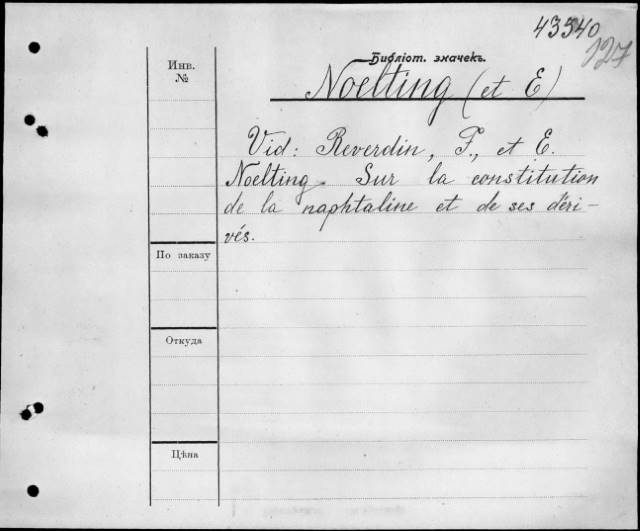 43540
127
Инв.
№
Библіот. значекъ.
Noelting (et E)
Vid: Reverdin, F., et E.
Noelting. Sur la constitution
de la naphtaline et de ses déri-
vés.
По заказу
Откуда
Цѣна